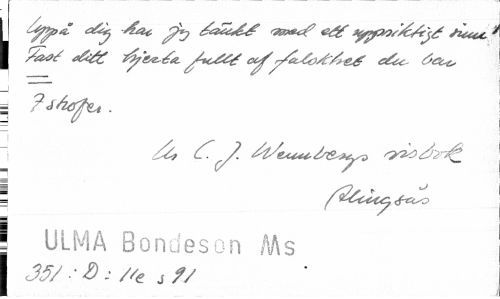 Uppå dig har jag tänkt med ett uppriktigt sinn'
Fast ditt hjerta fullt af falskhet du bar
7 strofer.
Ur C. J. Wennbergs visbok
Alingsås
ULMA Bondeson Ms
351 : D : 11e s 91